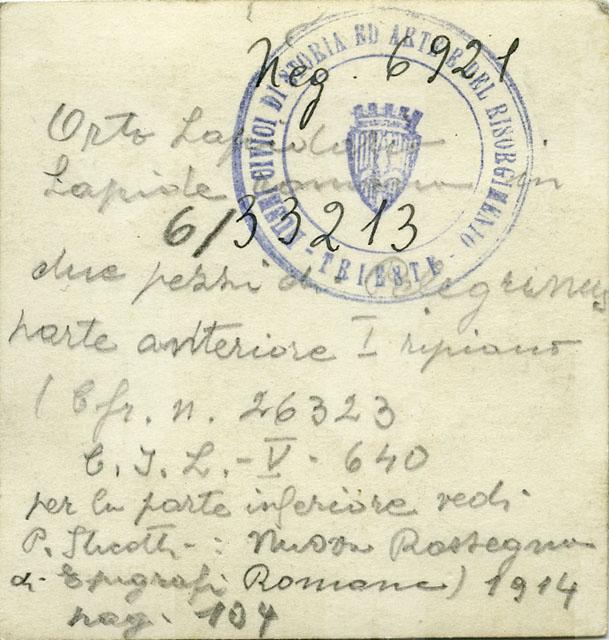 Neg. 6921
CIVICI DI STORIA ED ARTE E DEL RISORGIMENTO
- TRIESTE -
Orto Lapidario
Lapide romana in
6/33213
due pezzi di Pelegrinus
parte anteriore I ripiano
(Cfr. n. 26323
C. I. L. - V - 640
per la parte inferiore vedi
P. Sticotti - : Nuova Rassegna
di Epigrafi Romane) 1914
pag. 104